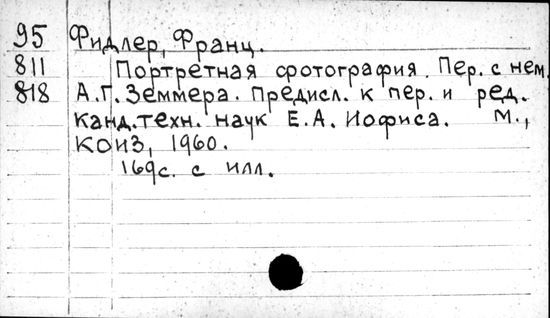 95 Фидлер, Франц.
811 Портретная фотография. Пер. с нем.
818 А.Г. Земмера. Предисл. к пер. и ред.
канд. техн. наук Е.А. Иофиса. М.,
КОИЗ, 1960.
169с. с илл.